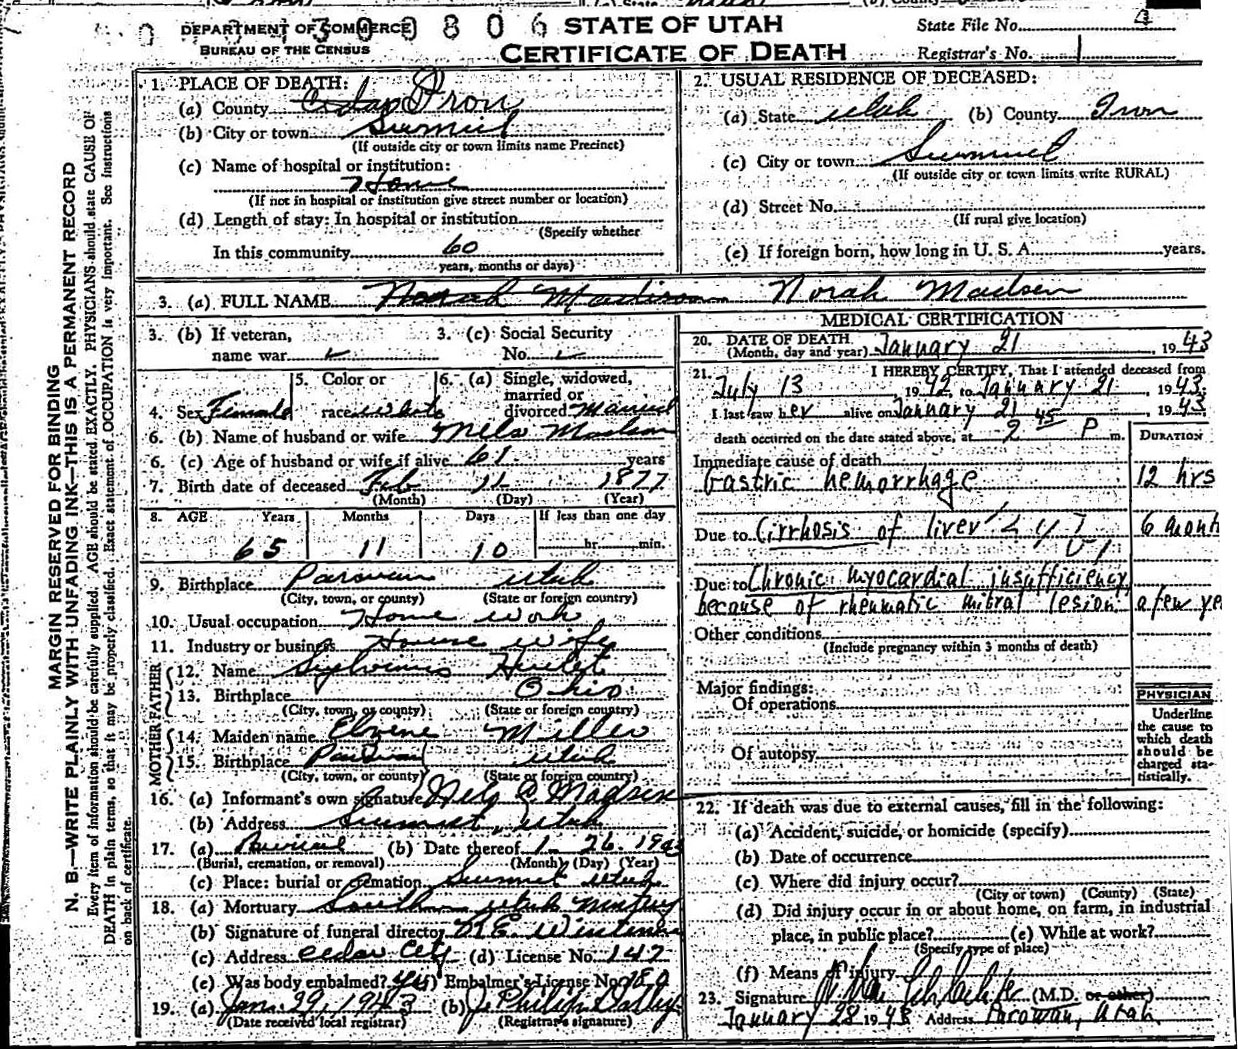 DEPARTMENT OF COMMERCE
BUREAU OF THE CENSUS
0 300806
STATE OF UTAH
CERTIFICATE OF DEATH
State File No. 4
Registrar's No. 1
MARGIN RESERVED FOR BINDING
N. B—WRITE PLAINLY WITH UNFADING INK—THIS IS A PERMANENT RECORD
Every item of information should be carefully supplied. AGE should be stated EXACTLY. PHYSICIANS should state CAUSE OF
DEATH in plain terms, so that it may be properly classified. Exact statement of OCCUPATION is very important. See Instructions
on back of certificate.
1. PLACE OF DEATH:
(a) County Iron
(b) City or town Summit
(If outside city or town limits name Precinct)
(c) Name of hospital or institution:
Home
(If not in hospital or institution give street number or location)
(d) Length of stay: In hospital or institution
(Specify whether
In this community 60
years, months or days)
2. USUAL RESIDENCE OF DECEASED:
(a) State Utah (b) County Iron
(c) City or town Summit
(If outside city or town limits write RURAL)
(d) Street No.
(If rural give location)
(e) If foreign born, how long in U. S. A. years.
3. (a) FULL NAME Norah Madison Norah Madsen
3. (b) If veteran, name war
3. (c) Social Security No.
4. Sex Female
5. Color or race White
6. (a) Single, widowed, married or divorced Married
6. (b) Name of husband or wife Nels Madsen
6. (c) Age of husband or wife if alive 61 years
7. Birth date of deceased Feb 11 1877
(Month) (Day) (Year)
8. AGE Years Months Days If less than one day
65 11 10 hr. min.
9. Birthplace Parowan Utah
(City, town, or county) (State or foreign country)
10. Usual occupation Home work
11. Industry or business House wife
FATHER
12. Name Sylvanus Hulet
13. Birthplace Ohio
(City, town, or county) (State or foreign country)
MOTHER
14. Maiden name Miller
15. Birthplace Parowan Utah
(City, town, or county) (State or foreign country)
16. (a) Informant's own signature Nels Madsen
(b) Address Summit, Utah
17. (a) Burial (b) Date thereof 1-26-1943
(Burial, cremation, or removal) (Month) (Day) (Year)
(c) Place: burial or cremation Summit Utah
18. (a) Mortuary Southern Utah Mortuary
(b) Signature of funeral director
(c) Address Cedar City (d) License No. 147
(e) Was body embalmed? Yes Embalmer's License No.
19. (a) Jan. 29, 1943 (b) J. Philip Dalley
(Date received local registrar) (Registrar's signature)
MEDICAL CERTIFICATION
20. DATE OF DEATH
(Month, day and year) January 21, 1943
21. I HEREBY CERTIFY, That I attended deceased from
July 13, 1942 to January 21 1943;
I last saw her alive on January 21, 1943
death occurred on the date stated above, at 2 45 P m.
DURATION
Immediate cause of death
Gastric hemorrhage 12 hrs
Due to Cirrhosis of liver 6 month
Due to Chronic myocardial insufficiency
because of rheumatic mitral lesion. a few ye
Other conditions
(Include pregnancy within 3 months of death)
Major findings:
Of operations
Of autopsy
PHYSICIAN
Underline the cause to which death should be charged statistically.
22. If death was due to external causes, fill in the following:
(a) Accident, suicide, or homicide (specify)
(b) Date of occurrence
(c) Where did injury occur?
(City or town) (County) (State)
(d) Did injury occur in or about home, on farm, in industrial
place, in public place? (e) While at work?
(Specify type of place)
(f) Means of injury
23. Signature (M.D. or other)
January 28 1943 Address Parowan, Utah